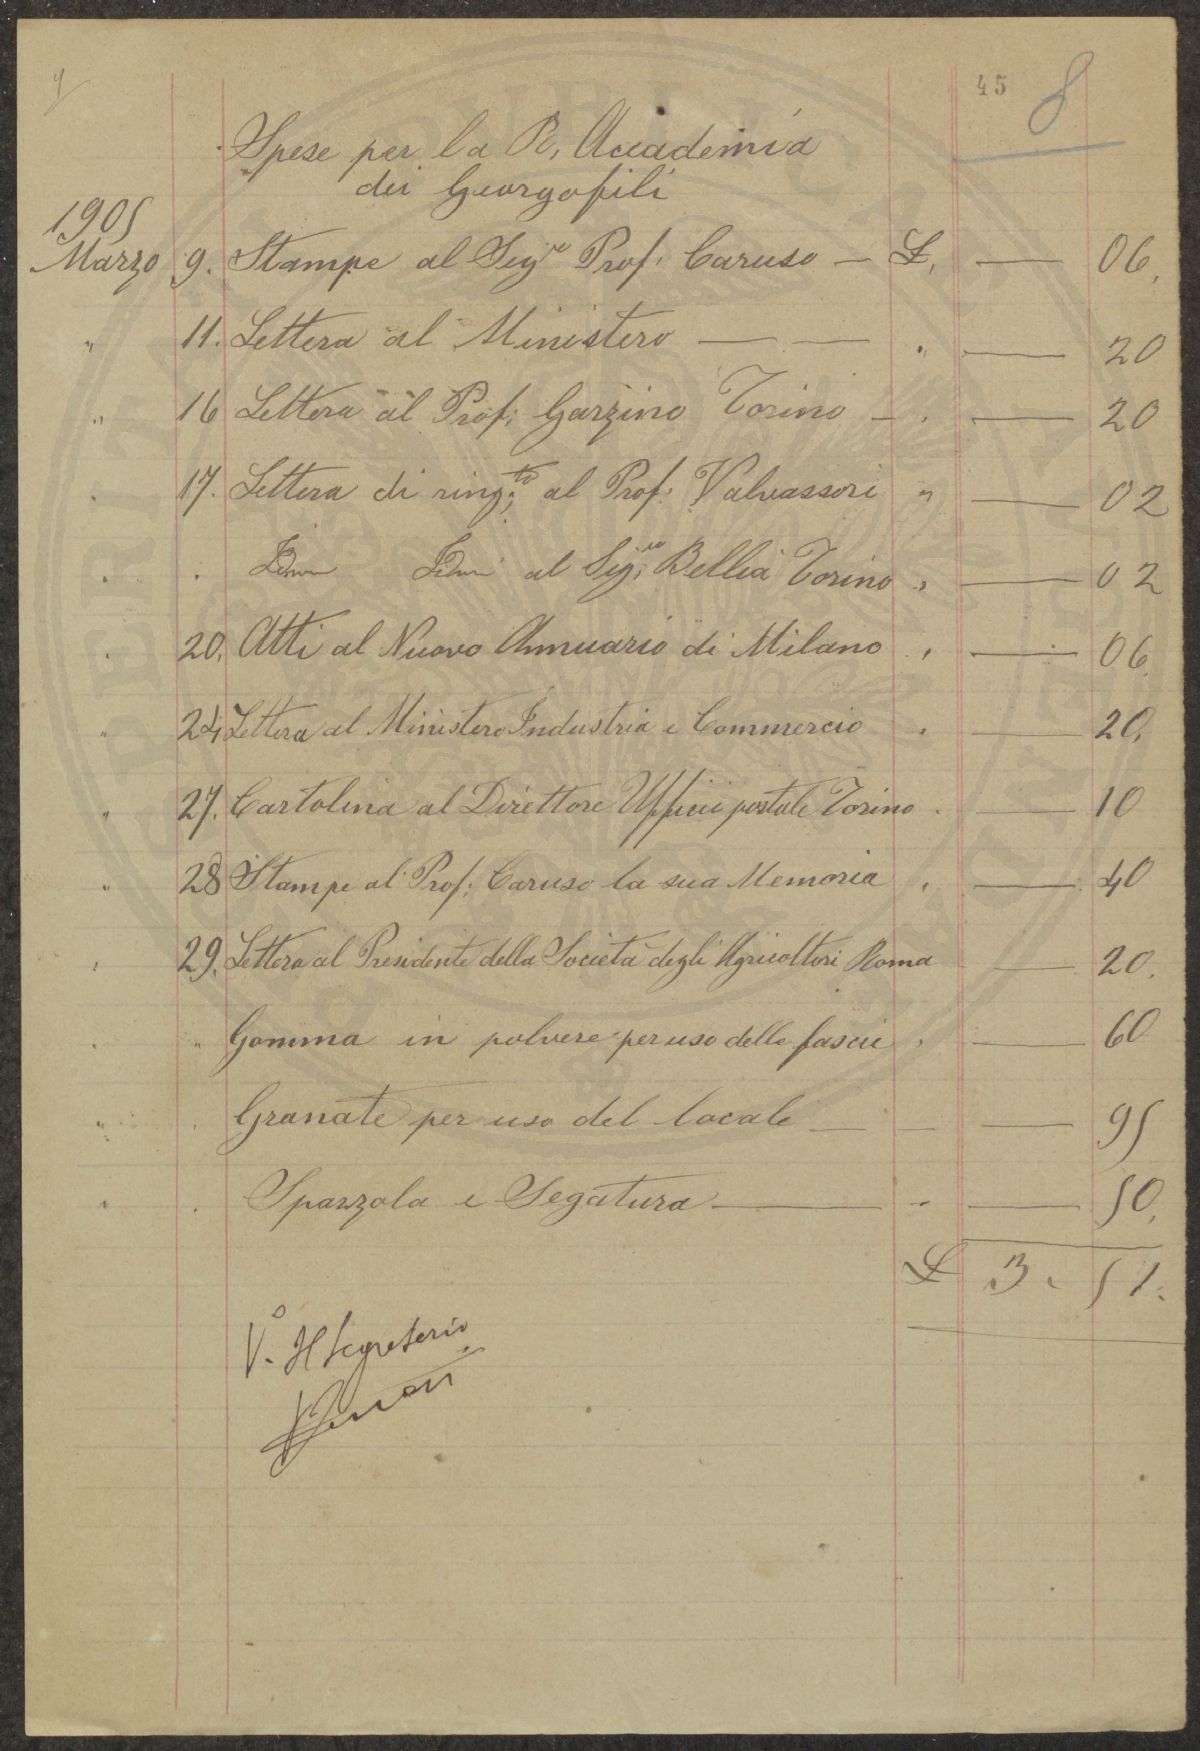 45 8
Spese per la R. Accademia
dei Georgofili
1905
Marzo 9. Stampe al Sigre Prof. Caruso — L. — 06.
" 11. Lettera al Ministero — — " — 20
" 16 Lettera al Prof. Garzino Torino — " — 20
" 17. Lettera di ringto al Prof. Valvassori " — 02
" " Idem Idem al Sigre Bellia Torino " — 02
" 20. Atti al Nuovo Annuario di Milano " — 06.
" 24. Lettera al Ministero Industria e Commercio " — 20.
" 27. Cartolina al Direttore Ufficii postale Torino " — 10
" 28 Stampe al Prof. Caruso la sua Memoria " — 40
" 29. Lettera al Presidente della Società degli Agricoltori Roma — 20.
" " Gomma in polvere per uso delle fascie " — 60
" " Granate per uso del locale — — — 95
" " Spazzola e Segatura — " — 50.
L 3. 51.
Vo. Il Segretario